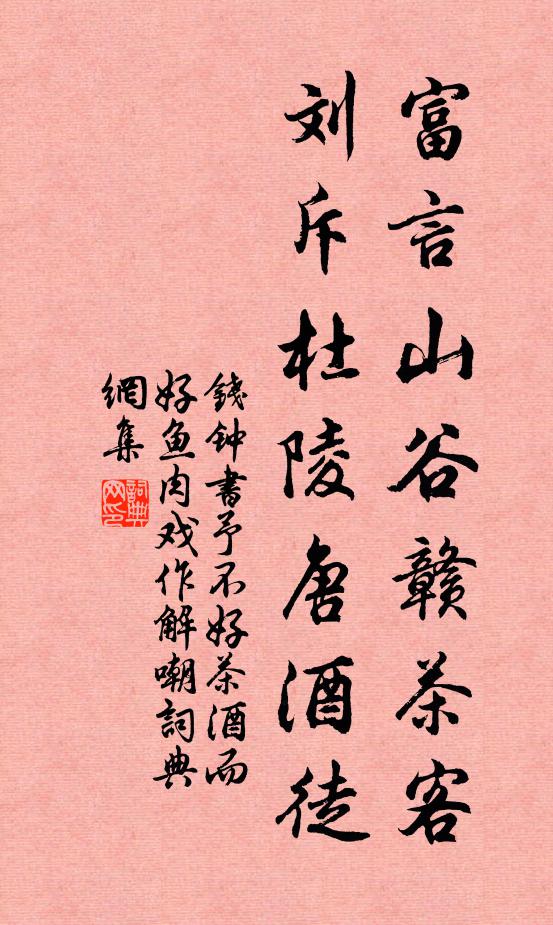 富言山谷赣茶客
刘斥杜陵唐酒徒
錢钟書予不好茶酒而
好鱼肉戏作解嘲詞典
網集
詞典
网印